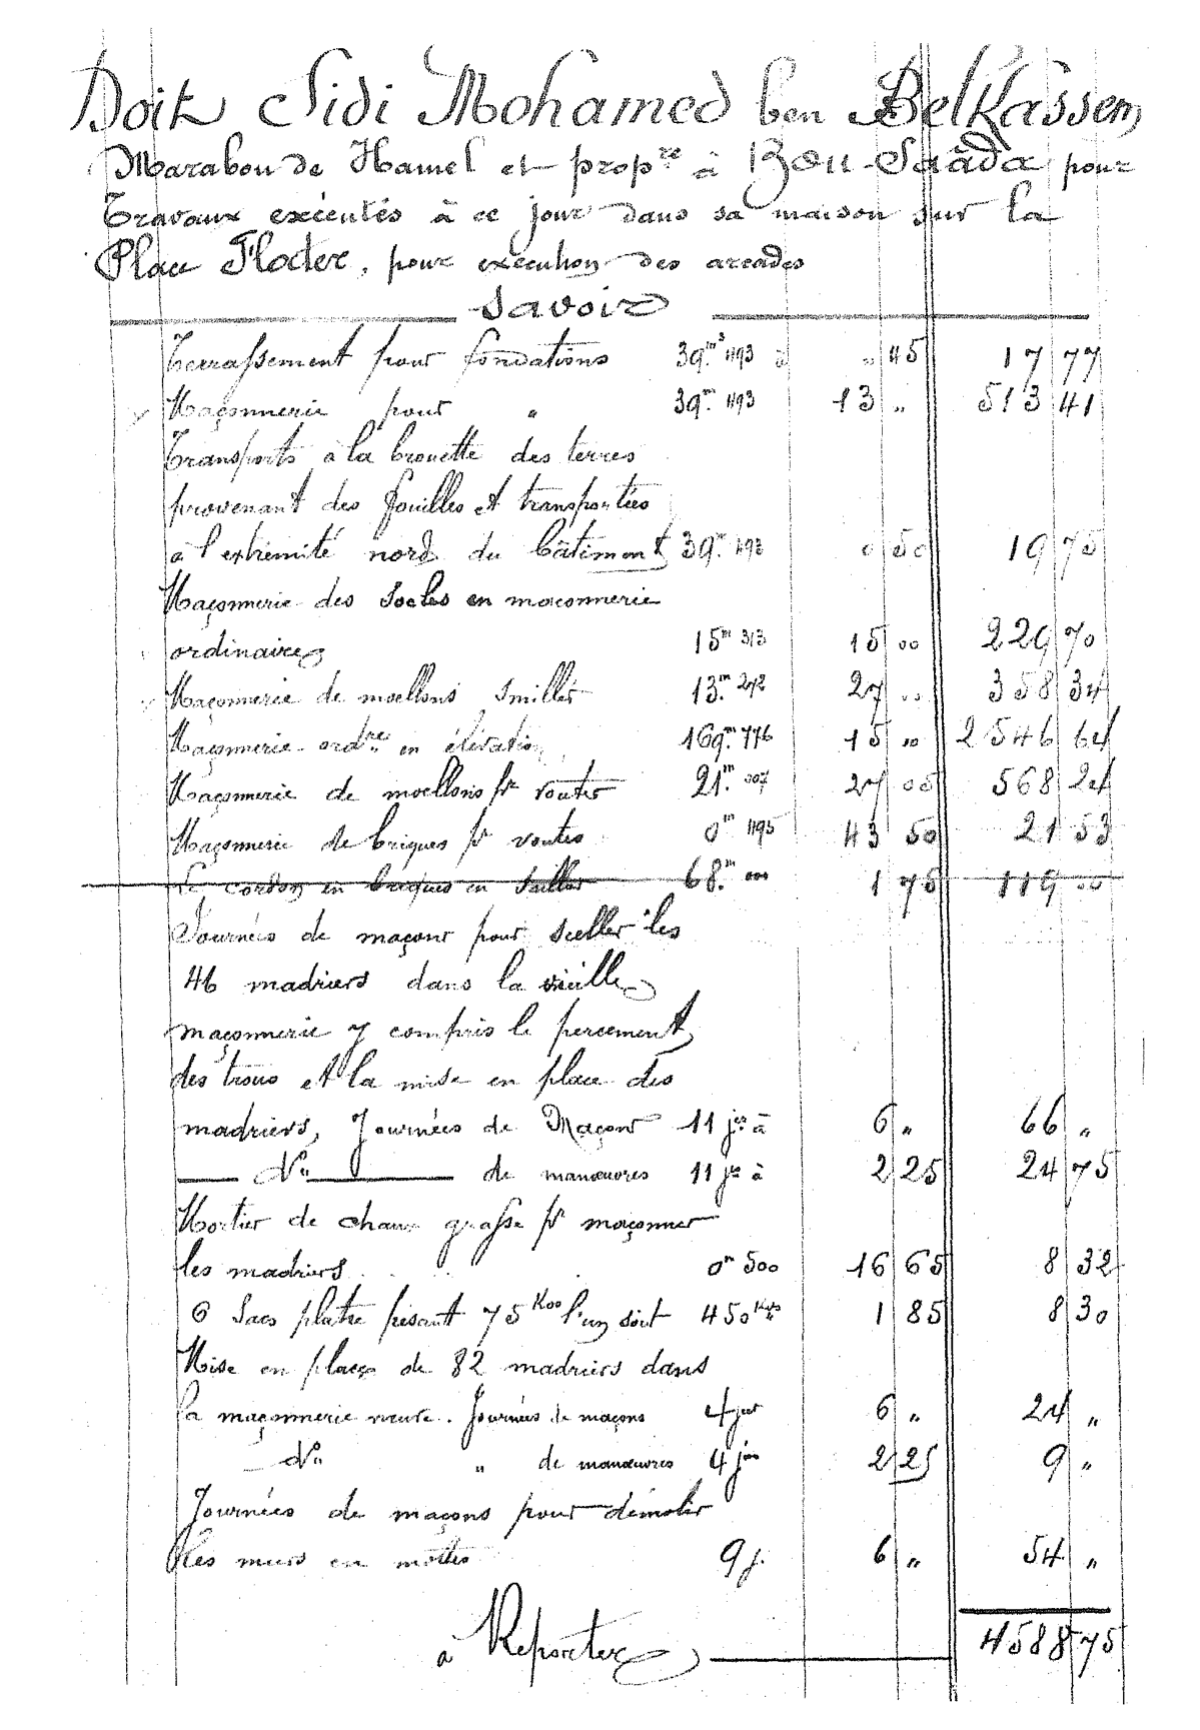 Doit Sidi Mohamed ben Belkassem
Marabou de Hamel et propre à Bou-Saâda pour
Travaux exécutés à ce jour dans sa maison sur la
Place , pour exécution des arcades
Savoir
Terrassement pour fondations 39m3 493 à " 45 17 77
Maçonnerie pour " 39m. 493 13 " 513 41
Transports à la brouette des terres
provenant des fouilles et transportées
à l'extrémité nord du bâtiment 39m. 493 0 50 19 75
Maçonnerie des socles en maçonnerie
ordinaire 15m 313 15 00 229 70
Maçonnerie de moellons smillés 13m. 272 27 00 358 34
Maçonnerie ordre en élévation 169m. 776 15 00 2546 64
Maçonnerie de moellons pr voutes 21m. 007 27 05 568 24
Maçonnerie de briques pr voutes 0m 495 43 50 21 53
Le cordon en briques en saillie 68m. 000 1 75 119 00
Journées de maçons pour sceller les
46 madriers dans la vieille
maçonnerie y compris le percement
des trous et la mise en place des
madriers, Journées de Maçons 11 jrs à 6 " 66 "
— do — de manœuvres 11 jrs à 2 25 24 75
Mortier de chaux grasse pr maçonner
les madriers 0m 500 16 65 8 32
6 Sacs platre pesant 75 Kos l'un soit 450 Kos 1 85 8 30
Mise en place de 82 madriers dans
la maçonnerie neuve. Journées de maçons 4 jrs 6 " 24 "
do " de manœuvres 4 jrs 2 25 9 "
Journées de maçons pour démolir
les murs en mottes 9 j. 6 " 54 "
à Reporter 4588 75